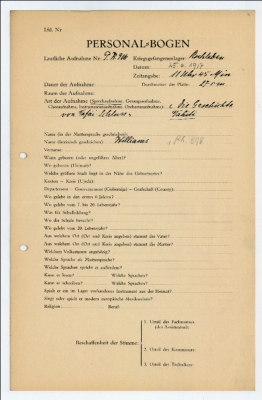 Lfd. Nr
PERSONAL=BOGEN
Lautliche Aufnahme Nr.: Kriegsgefangenenlager: Ruhleben
Datum: 1917
Zeitangabe: 11 Uhr 45 Min
Dauer der Aufnahme: Durchmesser der Platte:
Raum der Aufnahme:
Art der Aufnahme (Sprechaufnahme, Gesangsaufnahme, Die Geschichte
Choraufnahme, Instrumentenaufnahme, Orchesteraufnahme):
von
Name (in der Muttersprache geschrieben):
Name (lateinisch geschrieben): Williams
Vorname:
Wann geboren (oder ungefähres Alter)?
Wo geboren (Heimat)?
Welche größere Stadt liegt in der Nähe des Geburtsortes?
Kanton — Kreis (Ujedz):
Department — Gouvernement (Gubernija) — Grafschaft (County):
Wo gelebt in den ersten 6 Jahren?
Wo gelebt vom 7. bis 20. Lebensjahr?
Was für Schulbildung?
Wo die Schule besucht?
Wo gelebt vom 20. Lebensjahr?
Aus welchem Ort (Ort und Kreis angeben) stammt der Vater?
Aus welchem Ort (Ort und Kreis angeben) stammt die Mutter?
Welchem Volksstamm angehörig?
Welche Sprache als Muttersprache?
Welche Sprachen spricht er außerdem?
Kann er lesen? Welche Sprachen?
Kann er schreiben? Welche Sprachen?
Spielt er ein im Lager vorhandenes Instrument aus der Heimat?
Singt oder spielt er modern europäische Musikweisen?
Religion: Beruf:
1. Urteil des Fachmannes
(des Assistenten):
Beschaffenheit der Stimme:
2. Urteil des Kommissars:
3. Urteil des Technikers: